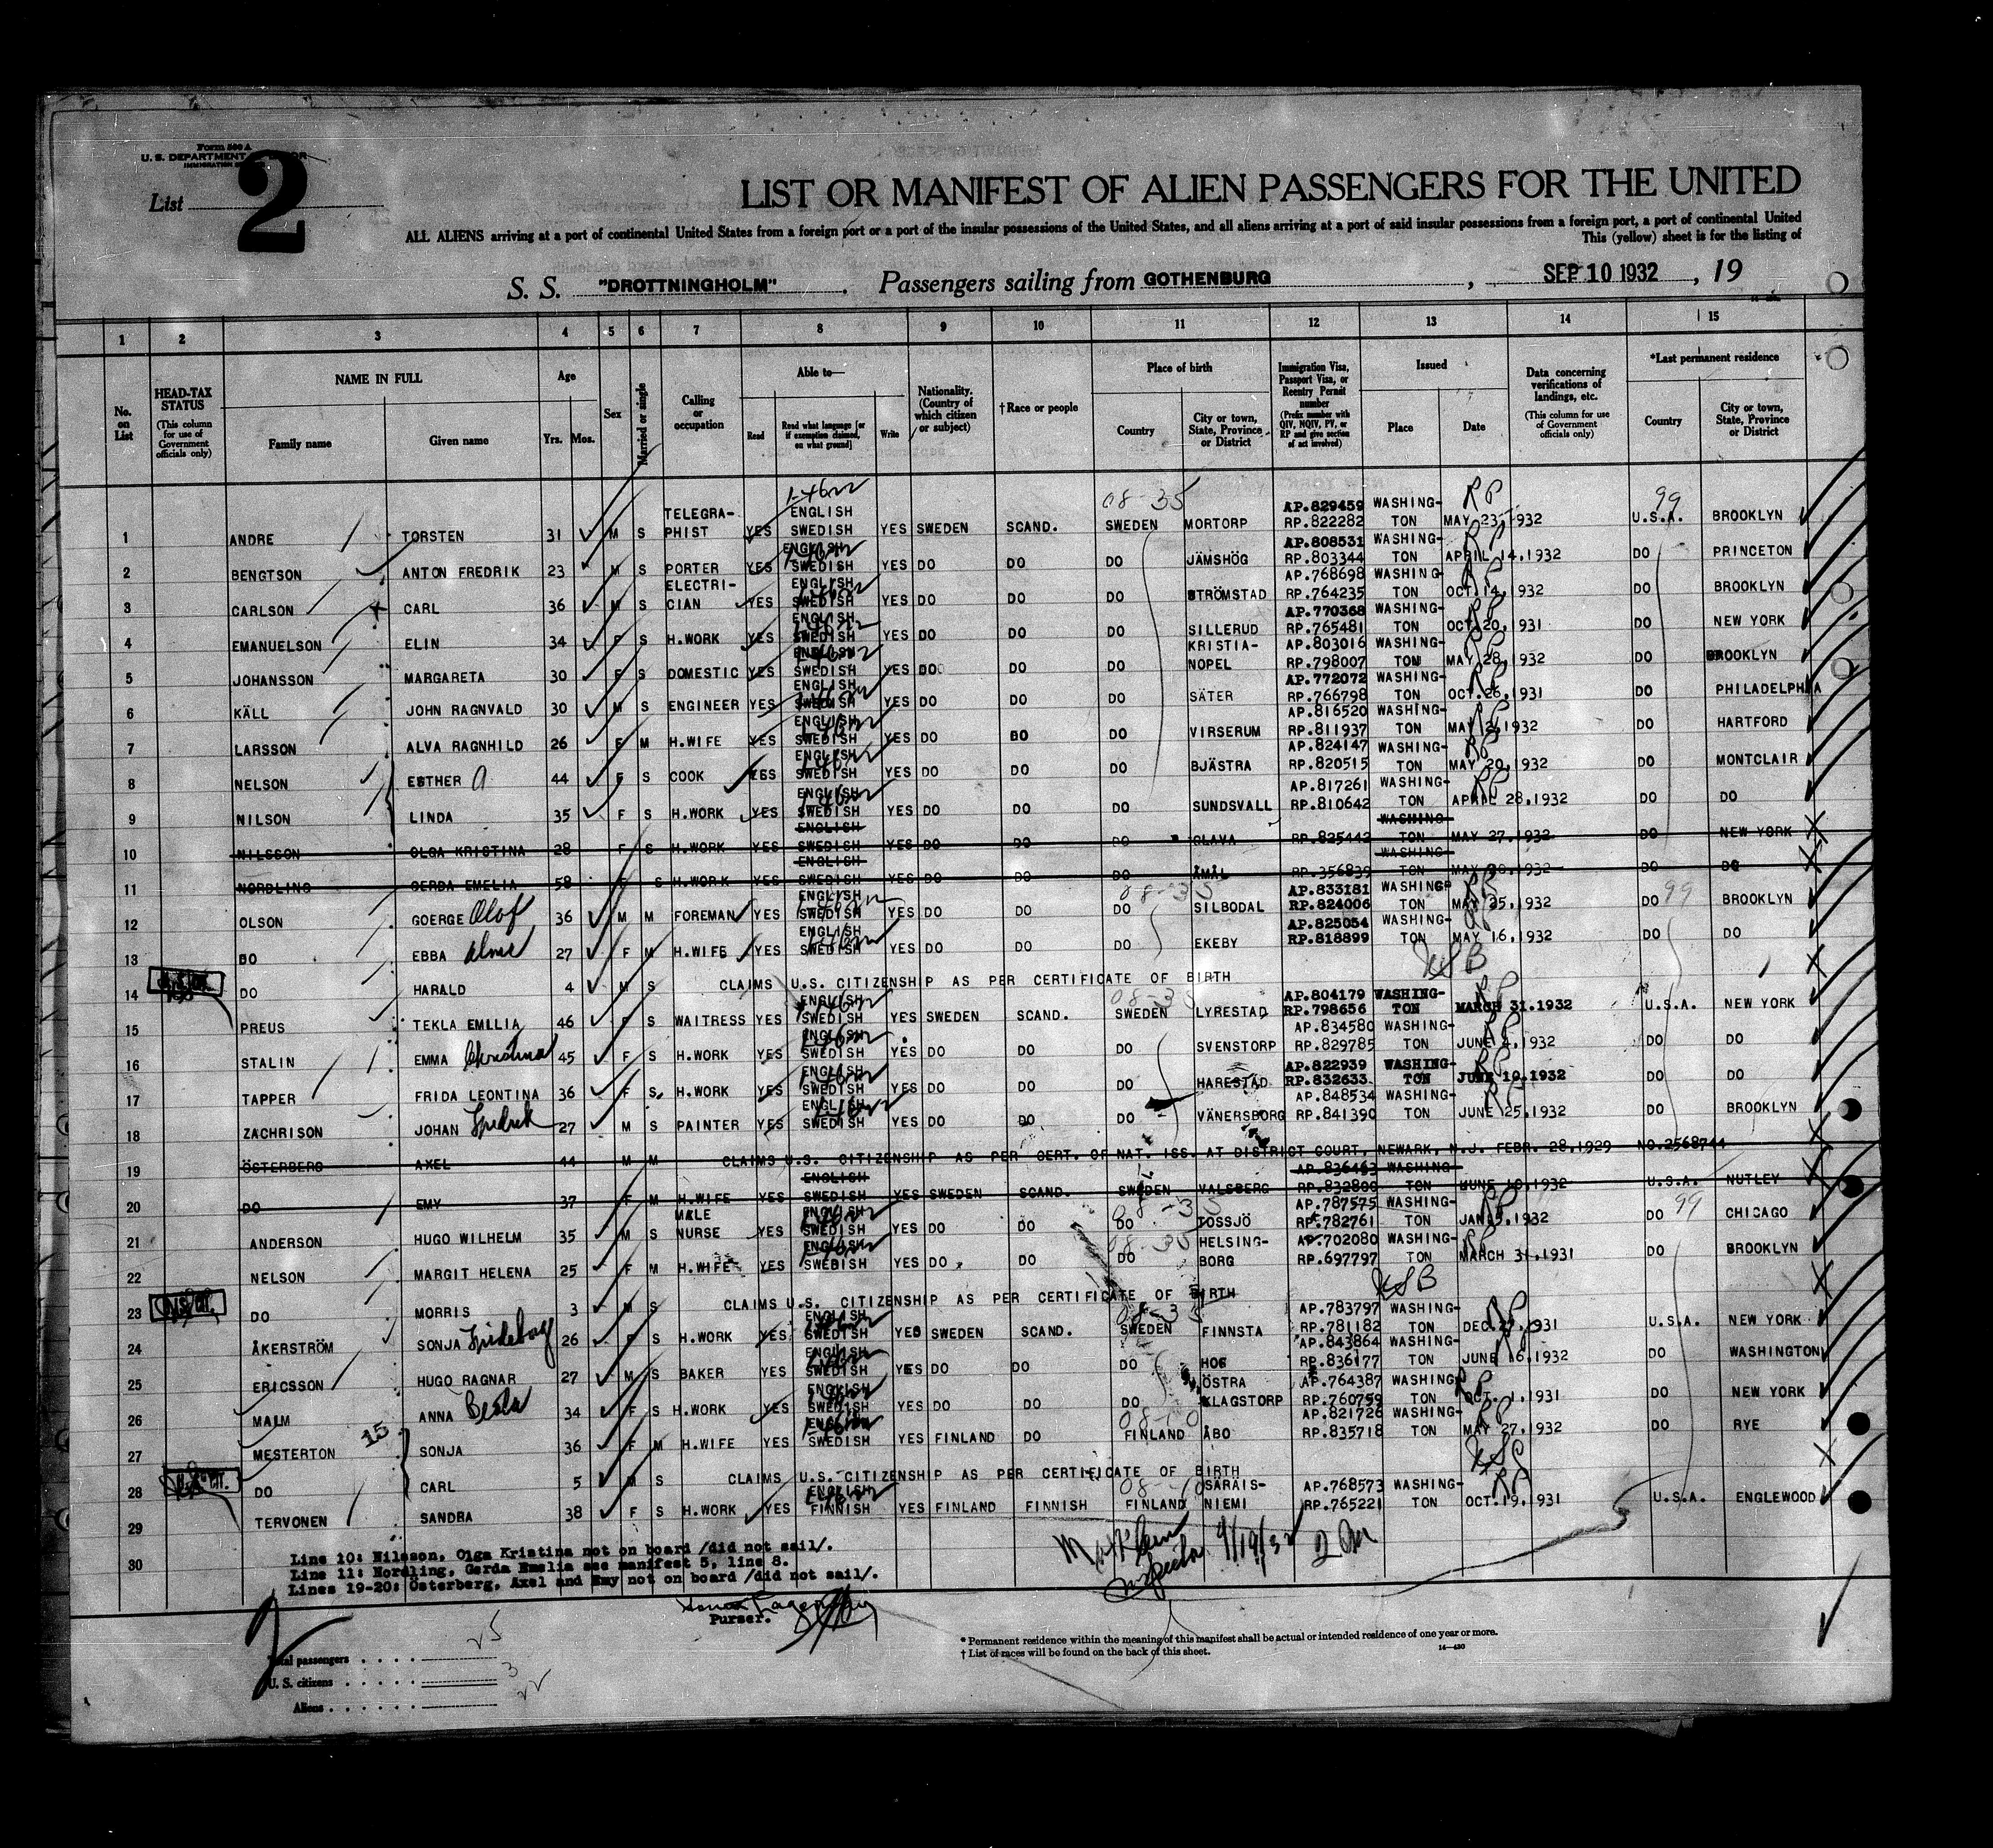 Form 500 A
U. S. DEPARTMENT OF LABOR
IMMIGRATION
List 2
LIST OR MANIFEST OF ALIEN PASSENGERS FOR THE UNITED
ALL ALIENS arriving at a port of continental United States from a foreign port or a port of the insular possessions of the United States, and all aliens arriving at a port of said insular possessions from a foreign port, a port of continental United
This (yellow) sheet is for the listing of
S. S. "DROTTNINGHOLM" , Passengers sailing from GOTHENBURG , SEP 10 1932 , 19
1 2 3 4 5 6 7 8 9 10 11 12 13 14 15
No. on List
HEAD-TAX STATUS (This column for use of Government officials only)
NAME IN FULL Family name Given name
Age Yrs. Mos.
Sex
Married or single
Calling or occupation
Able to— Read Read what language [or if exemption claimed, on what ground] Write
Nationality. (Country of which citizen or subject)
† Race or people
Place of birth Country City or town, State, Province or District
Immigration Visa, Passport Visa, or Reentry Permit number (Prefix number with QIV, NQIV, PV, or RP and give section of act involved)
Issued Place Date
Data concerning verifications of landings, etc. (This column for use of Government officials only)
*Last permanent residence Country City or town, State, Province or District
1 ANDRE TORSTEN 31 M S TELEGRA-PHIST YES ENGLISH SWEDISH YES SWEDEN SCAND. SWEDEN MORTORP AP.829459 RP.822282 WASHING-TON MAY 23,1932 U.S.A. BROOKLYN
2 BENGTSON ANTON FREDRIK 23 M S PORTER YES ENGLISH SWEDISH YES DO DO DO JÄMSHÖG AP.808531 RP.803344 WASHING-TON APRIL 14,1932 DO PRINCETON
3 CARLSON CARL 36 M S ELECTRI-CIAN YES ENGLISH SWEDISH YES DO DO DO STRÖMSTAD AP.768698 RP.764235 WASHING-TON OCT.14,1932 DO BROOKLYN
4 EMANUELSON ELIN 34 F S H.WORK YES ENGLISH SWEDISH YES DO DO DO SILLERUD AP.770368 RP.765481 WASHING-TON OCT.20,1931 DO NEW YORK
5 JOHANSSON MARGARETA 30 F S DOMESTIC YES ENGLISH SWEDISH YES DO DO DO KRISTIA-NOPEL AP.803016 RP.798007 WASHING-TON MAY 28,1932 DO BROOKLYN
6 KÄLL JOHN RAGNVALD 30 M S ENGINEER YES ENGLISH SWEDISH YES DO DO DO SÄTER AP.772072 RP.766798 WASHING-TON OCT.26,1931 DO PHILADELPHIA
7 LARSSON ALVA RAGNHILD 26 F M H.WIFE YES ENGLISH SWEDISH YES DO DO DO VIRSERUM AP.816520 RP.811937 WASHING-TON MAY 2,1932 DO HARTFORD
8 NELSON ESTHER A 44 F S COOK YES ENGLISH SWEDISH YES DO DO DO BJÄSTRA AP.824147 RP.820515 WASHING-TON MAY 20,1932 DO MONTCLAIR
9 NILSON LINDA 35 F S H.WORK YES ENGLISH SWEDISH YES DO DO DO SUNDSVALL AP.817261 RP.810642 WASHING-TON APRIL 28,1932 DO DO
10 NILSSON OLGA KRISTINA 28 F S H.WORK YES ENGLISH SWEDISH YES DO DO DO GLAVA RP.825442 WASHING-TON MAY 27,1932 DO NEW YORK
11 NORDLING GERDA EMELIA 58 F S H.WORK YES ENGLISH SWEDISH YES DO DO DO ÅMÅL RP.356839 WASHING-TON 1932 DO DO
12 OLSON GOERGE Olof 36 M M FOREMAN YES ENGLISH SWEDISH YES DO DO DO SILBODAL AP.833181 RP.824006 WASHING-TON MAY 25,1932 DO BROOKLYN
13 DO EBBA Alme 27 F M H.WIFE YES ENGLISH SWEDISH YES DO DO DO EKEBY AP.825054 RP.818899 WASHING-TON MAY 16,1932 DO DO
14 DO HARALD 4 M S CLAIMS U.S. CITIZENSHIP AS PER CERTIFICATE OF BIRTH
15 PREUS TEKLA EMILIA 46 F S WAITRESS YES ENGLISH SWEDISH YES SWEDEN SCAND. SWEDEN LYRESTAD AP.804179 RP.798656 WASHING-TON MARCH 31.1932 U.S.A. NEW YORK
16 STALIN EMMA Christina 45 F S H.WORK YES ENGLISH SWEDISH YES DO DO DO SVENSTORP AP.834580 RP.829785 WASHING-TON JUNE 4,1932 DO DO
17 TAPPER FRIDA LEONTINA 36 F S H.WORK YES ENGLISH SWEDISH YES DO DO DO HARESTAD AP.822939 RP.832633 WASHING-TON JUNE 10,1932 DO DO
18 ZACHRISON JOHAN Fredrik 27 M S PAINTER YES ENGLISH SWEDISH YES DO DO DO VÄNERSBORG AP.848534 RP.841390 WASHING-TON JUNE 25,1932 DO BROOKLYN
19 ÖSTERBERG AXEL 44 M M CLAIMS U.S. CITIZENSHIP AS PER CERT. OF NAT. ISS. AT DISTRICT COURT, NEWARK, N.J. FEBR. 28,1929 NO.2568744
20 DO EMY 37 F M H.WIFE YES ENGLISH SWEDISH YES SWEDEN SCAND. SWEDEN VALSBERG AP.836463 RP.832800 WASHING-TON JUNE 10,1932 U.S.A. NUTLEY
21 ANDERSON HUGO WILHELM 35 M S MALE NURSE YES ENGLISH SWEDISH YES DO DO DO TOSSJÖ AP.787575 RP.782761 WASHING-TON JAN.5,1932 DO CHICAGO
22 NELSON MARGIT HELENA 25 F M H.WIFE YES ENGLISH SWEDISH YES DO DO DO HELSING-BORG AP.702080 RP.697797 WASHING-TON MARCH 31,1931 DO BROOKLYN
23 DO MORRIS 3 M S CLAIMS U.S. CITIZENSHIP AS PER CERTIFICATE OF BIRTH
24 ÅKERSTRÖM SONJA Frideborg 26 F S H.WORK YES ENGLISH SWEDISH YES SWEDEN SCAND. SWEDEN FINNSTA AP.783797 RP.781182 WASHING-TON DEC.27,1931 U.S.A. NEW YORK
25 ERICSSON HUGO RAGNAR 27 M S BAKER YES ENGLISH SWEDISH YES DO DO DO HOG AP.843864 RP.836177 WASHING-TON JUNE 16,1932 DO WASHINGTON
26 MALM ANNA Berta 34 F S H.WORK YES ENGLISH SWEDISH YES DO DO DO ÖSTRA KLAGSTORP AP.764387 RP.760759 WASHING-TON OCT. 1,1931 DO NEW YORK
27 MESTERTON 15 SONJA 36 F M H.WIFE YES ENGLISH SWEDISH YES FINLAND DO FINLAND ÅBO AP.821726 RP.835718 WASHING-TON MAY 27,1932 DO RYE
28 DO CARL 5 M S CLAIMS U.S. CITIZENSHIP AS PER CERTIFICATE OF BIRTH
29 TERVONEN SANDRA 38 F S H.WORK YES ENGLISH FINNISH YES FINLAND FINNISH FINLAND SÄRÄIS-NIEMI AP.768573 RP.765221 WASHING-TON OCT.19,1931 U.S.A. ENGLEWOOD
30
Line 10: Nilsson, Olga Kristina not on board /did not sail/.
Line 11: Nordling, Gerda Emelia see manifest 5, line 8.
Lines 19-20: Österberg, Axel and Emy not on board /did not sail/.
Inspector 9/19/32
Purser.
Total passengers . . . . 25
U. S. citizens . . . . . 3
Aliens . . . . . 22
* Permanent residence within the meaning of this manifest shall be actual or intended residence of one year or more.
† List of races will be found on the back of this sheet.
14—430